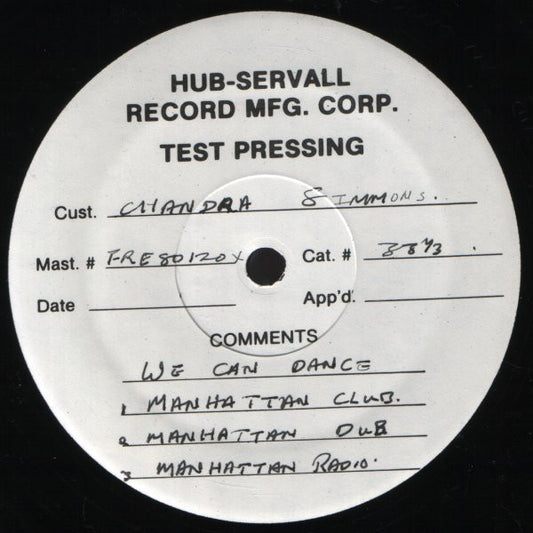 HUB-SERVALL
RECORD MFG. CORP.
TEST PRESSING
Cust. CHANDRA SIMMONS.
Mast. # FRE80120X Cat. # 33 1/3 .
Date App'd.
COMMENTS
WE CAN DANCE
1 MANHATTAN CLUB.
2 MANHATTAN DUB
3 MANHATTAN RADIO.